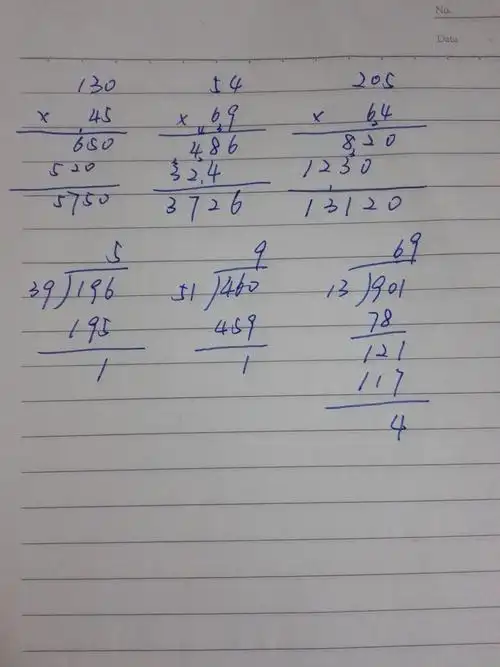 No.
Date
130 54 205
× 45 × 69 × 64
650 486 820
520 324 1230
5750 3726 13120
5 9 69
39)196 51)460 13)901
195 459 78
1 1 121
117
4